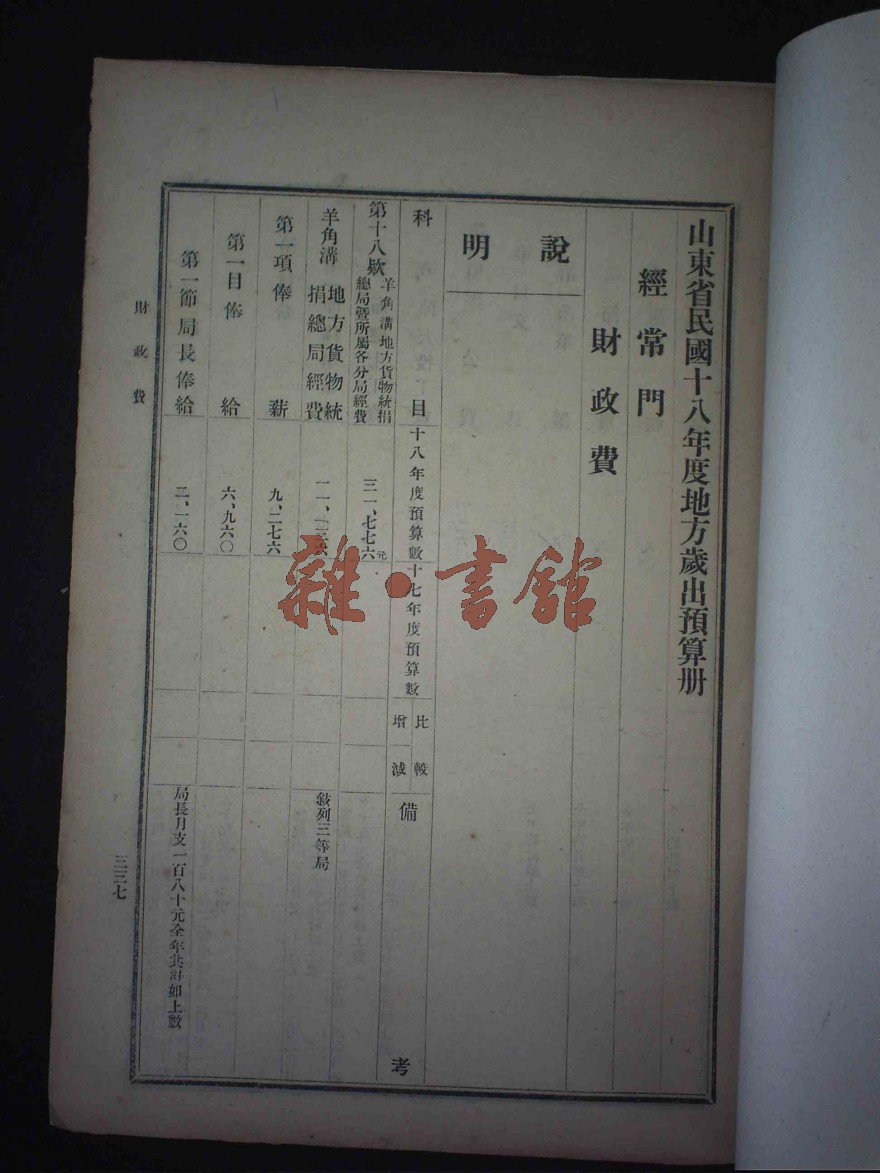 山東省民國十八年度地方歲出預算册
經常門
財政費
說明
科目
十八年度預算數
十七年度預算數
比較
增減
備考
第十八欵
羊角溝地方貨物統捐
總局暨所屬各分局經費
三一、七七六元
羊角溝
地方貨物統
捐總局經費
敍列三等局
第一項俸薪
九、二七六
第一目俸給
六、九六〇
第一節局長俸給
二、一六〇
局長月支一百八十元全年共計如上數
財政費
三三七
雜·書館